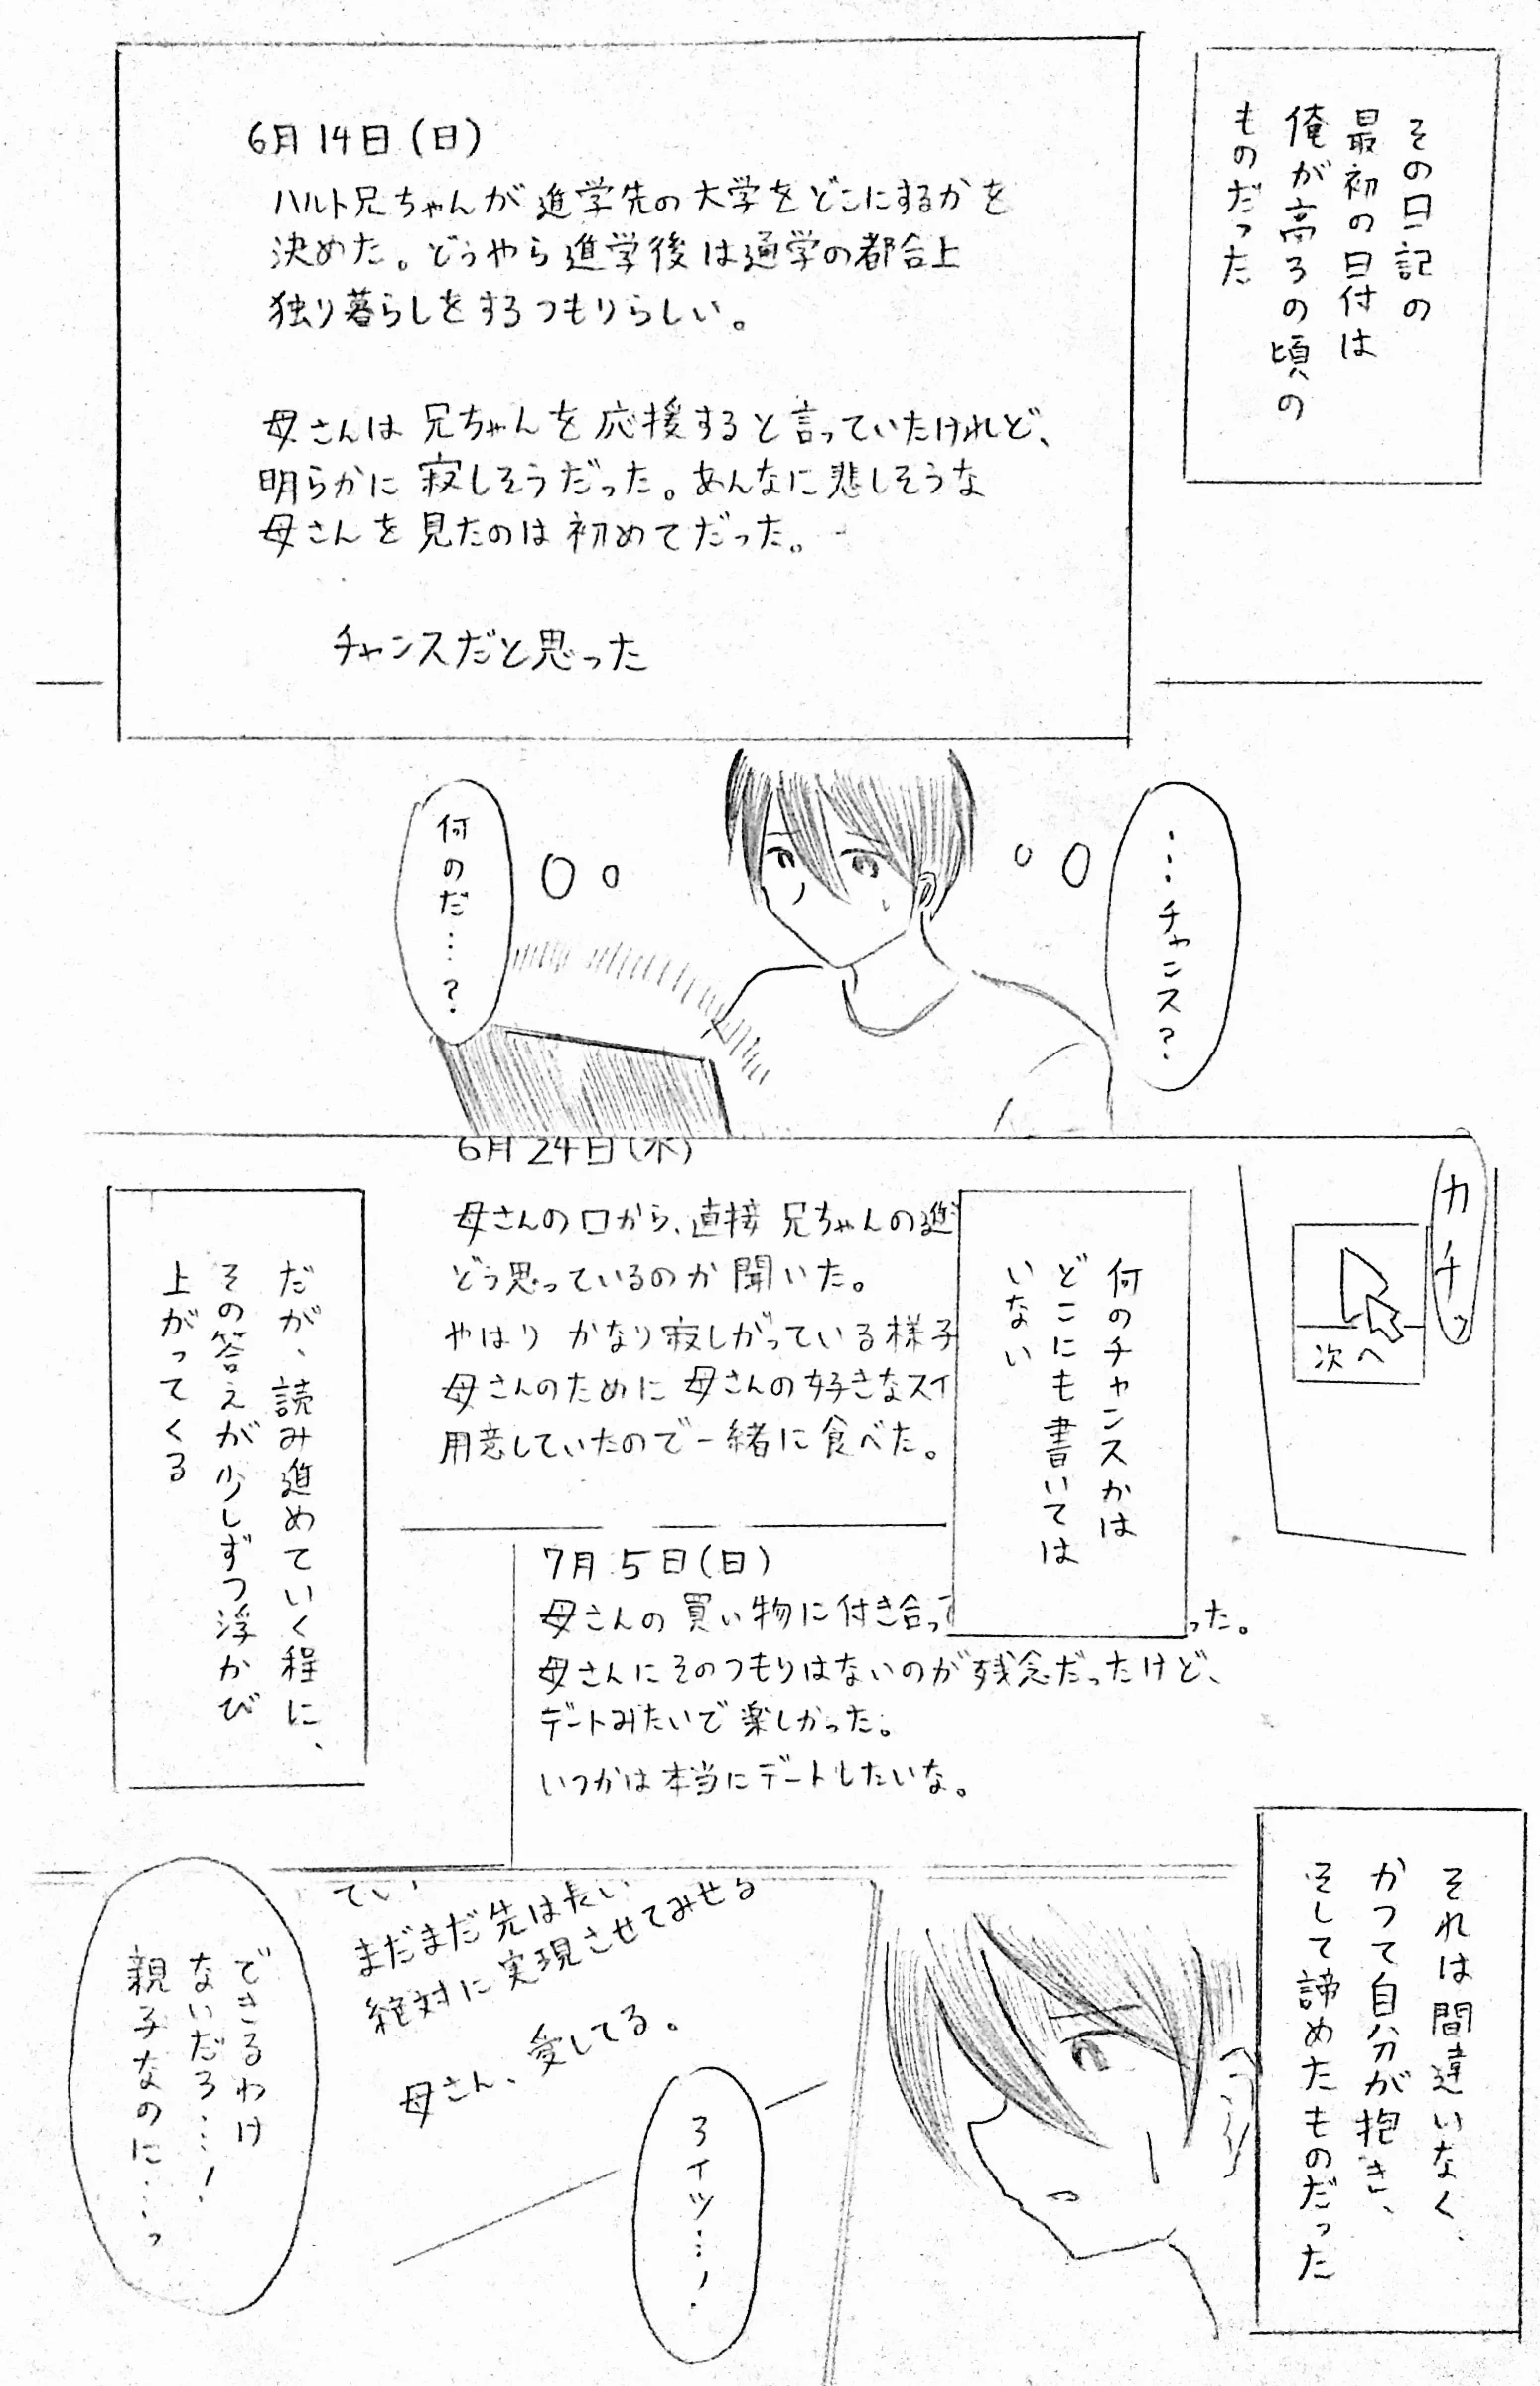 その日記の
最初の日付は
俺が高3の頃の
ものだった
6月14日(日)
ハルト兄ちゃんが進学先の大学をどこにするかを
決めた。どうやら進学後は通学の都合上
独り暮らしをするつもりらしい。
母さんは兄ちゃんを応援すると言っていたけれど、
明らかに寂しそうだった。あんなに悲しそうな
母さんを見たのは初めてだった。
チャンスだと思った
…チャンス?
何のだ…?
カチッ
次へ
何のチャンスかは
どこにも書いては
いない
6月24日(水)
母さんの口から、直接兄ちゃんの進
どう思っているのか聞いた。
やはりかなり寂しがっている様子
母さんのために母さんの好きなスイ
用意していたので一緒に食べた。
だが、読み進めていく程に、
その答えが少しずつ浮かび
上がってくる
7月5日(日)
母さんの買い物に付き合っ
った。
母さんにそのつもりはないのが残念だったけど、
デートみたいで楽しかった。
いつかは本当にデートしたいな。
それは間違いなく、
かつて自分が抱き、
そして諦めたものだった
まだまだ先は長い
絶対に実現させてみせる
母さん、愛してる。
アイツ…!
できるわけ
ないだろ…!
親子なのに…っ